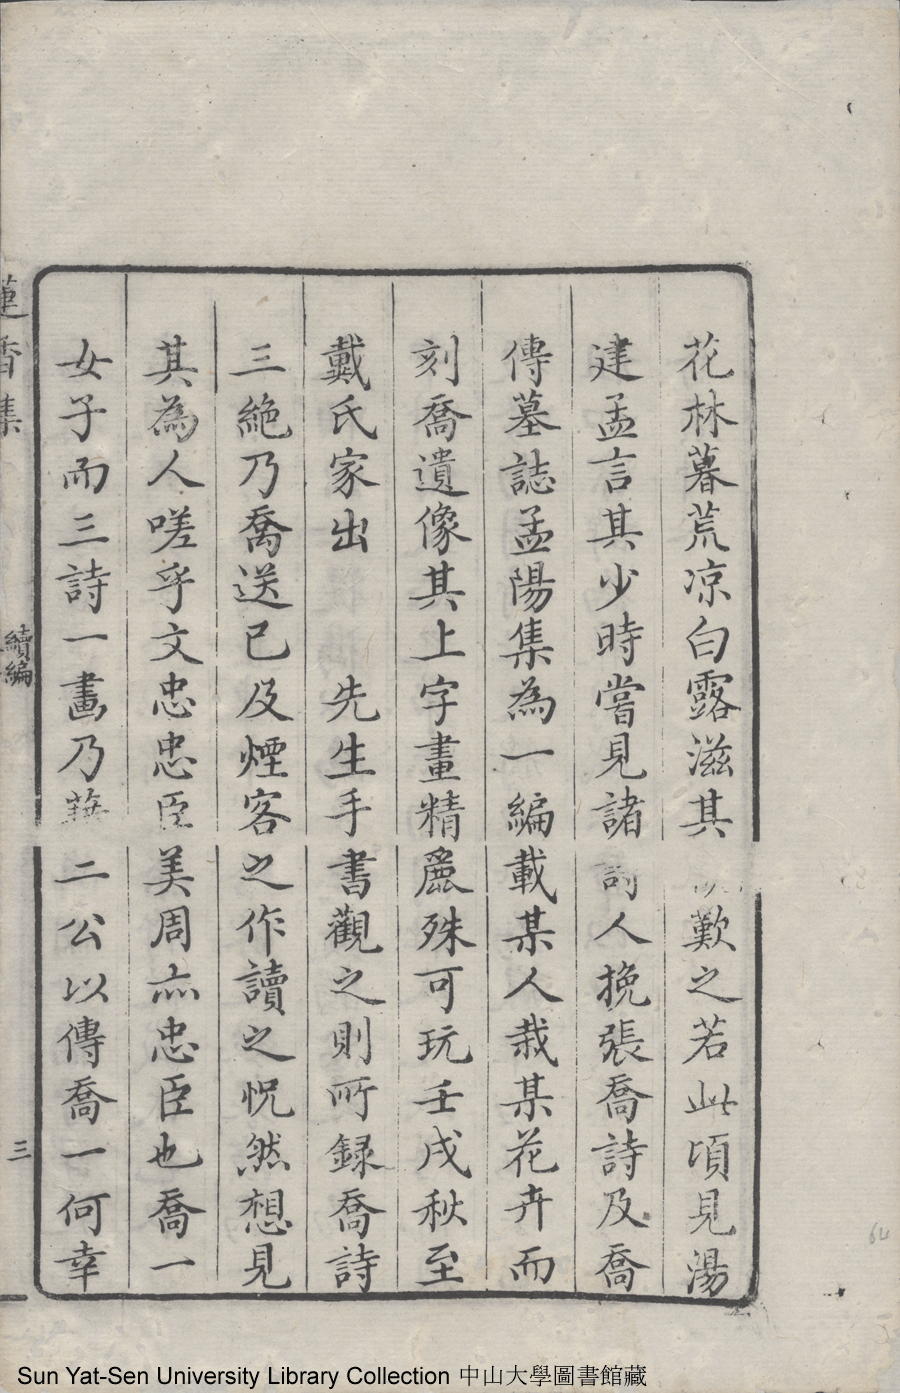 花林暮荒凉白露滋其歎之若此頃見湯
建孟言其少時嘗見諸詞人挽張喬詩及喬
傳墓誌孟陽集為一編載某人栽某花卉而
刻喬遺像其上字畫精麗殊可玩壬戌秋至
戴氏家出　先生手書觀之則所録喬詩
三絕乃喬送已及煙客之作讀之怳然想見
其為人嗟乎文忠忠臣美周亦忠臣也喬一
女子而三詩一畫乃藉二公以傳喬一何幸
蓮香集
續編
三
Sun Yat-Sen University Library Collection 中山大學圖書館藏